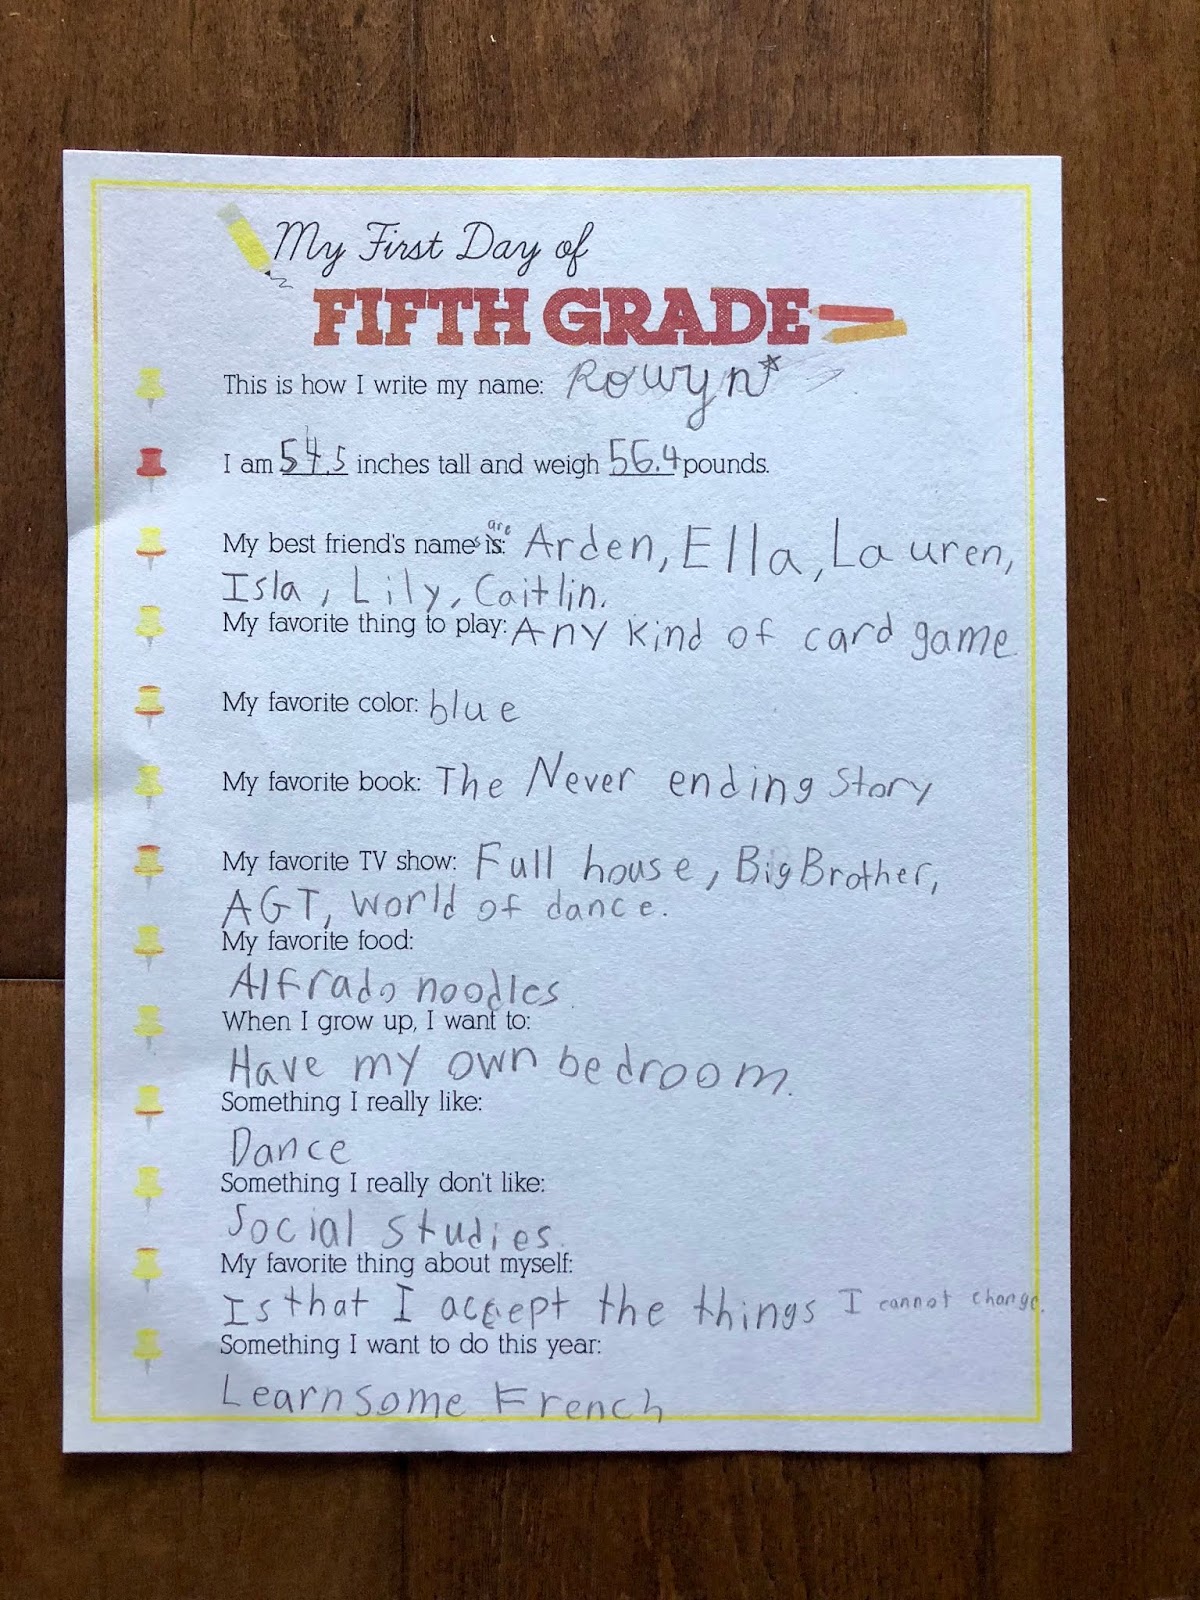 My First Day of
FIFTH GRADE
This is how I write my name: Rowyn
I am 54.5 inches tall and weigh 56.4 pounds.
are
My best friend's names is: Arden, Ella, Lauren,
Isla, Lily, Caitlin.
My favorite thing to play: Any kind of card game
My favorite color: blue
My favorite book: The Never ending Story
My favorite TV show: Full house, Big Brother,
AGT, World of dance.
My favorite food:
Alfrado noodles.
When I grow up, I want to:
Have my own bedroom.
Something I really like:
Dance
Something I really don't like:
Social studies.
My favorite thing about myself:
Is that I accept the things I cannot change.
Something I want to do this year:
Learn some French